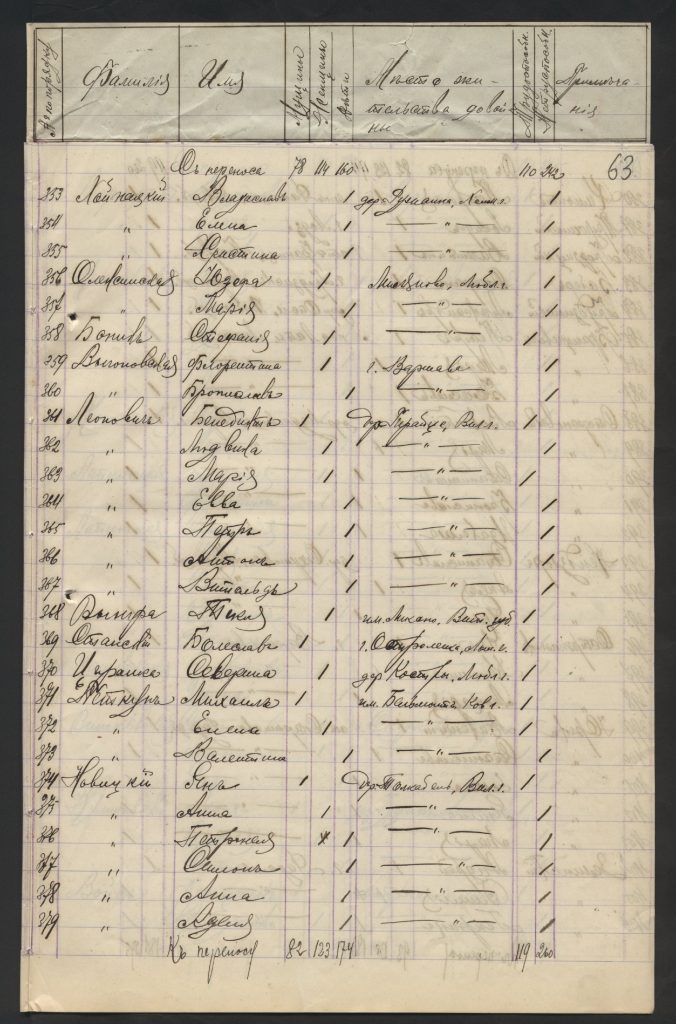 № по порядку Фамилія Имя Мущины Женщины Дѣти Мѣсто жи-тельства до войны Трудоспособн. Нетрудоспособн. Примѣча-нія
63
Съ переноса 78 114 160 110 242
353 Владиславъ 1 дер. Холм. г. 1
354 " Елена 1 — " — 1
355 " Христина 1 — " — 1
356 Юзефа 1 Любл. г. 1
357 " Марія 1 — " — 1
358 Стефанія 1 — " — 1
359 Флорентина 1 г. Варшава 1
360 " Брониславъ 1 — " — 1
361 Леоновичъ Бенедиктъ 1 Вил. г. 1
362 " Людвика 1 — " — 1
363 " Марія 1 — " — 1
364 " Евва 1 — " — 1
365 " Петръ 1 — " — 1
366 " Антонъ 1 — " — 1
367 " Витольдъ 1 — " — 1
368 Текля 1 им. Вит. губ. 1
369 Болеслав 1 г. Остроленка, Лом. г. 1
370 Северина 1 дер. Костры, Любл. г. 1
371 Петкунъ Михаилъ 1 им. Ков. г. 1
372 " Елена 1 — " — 1
373 " Валентина 1 — " — 1
374 Новицкій Янъ 1 дер. Вил. г. 1
375 " Анна 1 — " — 1
376 " Петронеля 1 — " — 1
377 " Симонъ 1 — " — 1
378 " Анна 1 — " — 1
379 " Аделя 1 — " — 1
Къ переносу 82 123 174 119 260